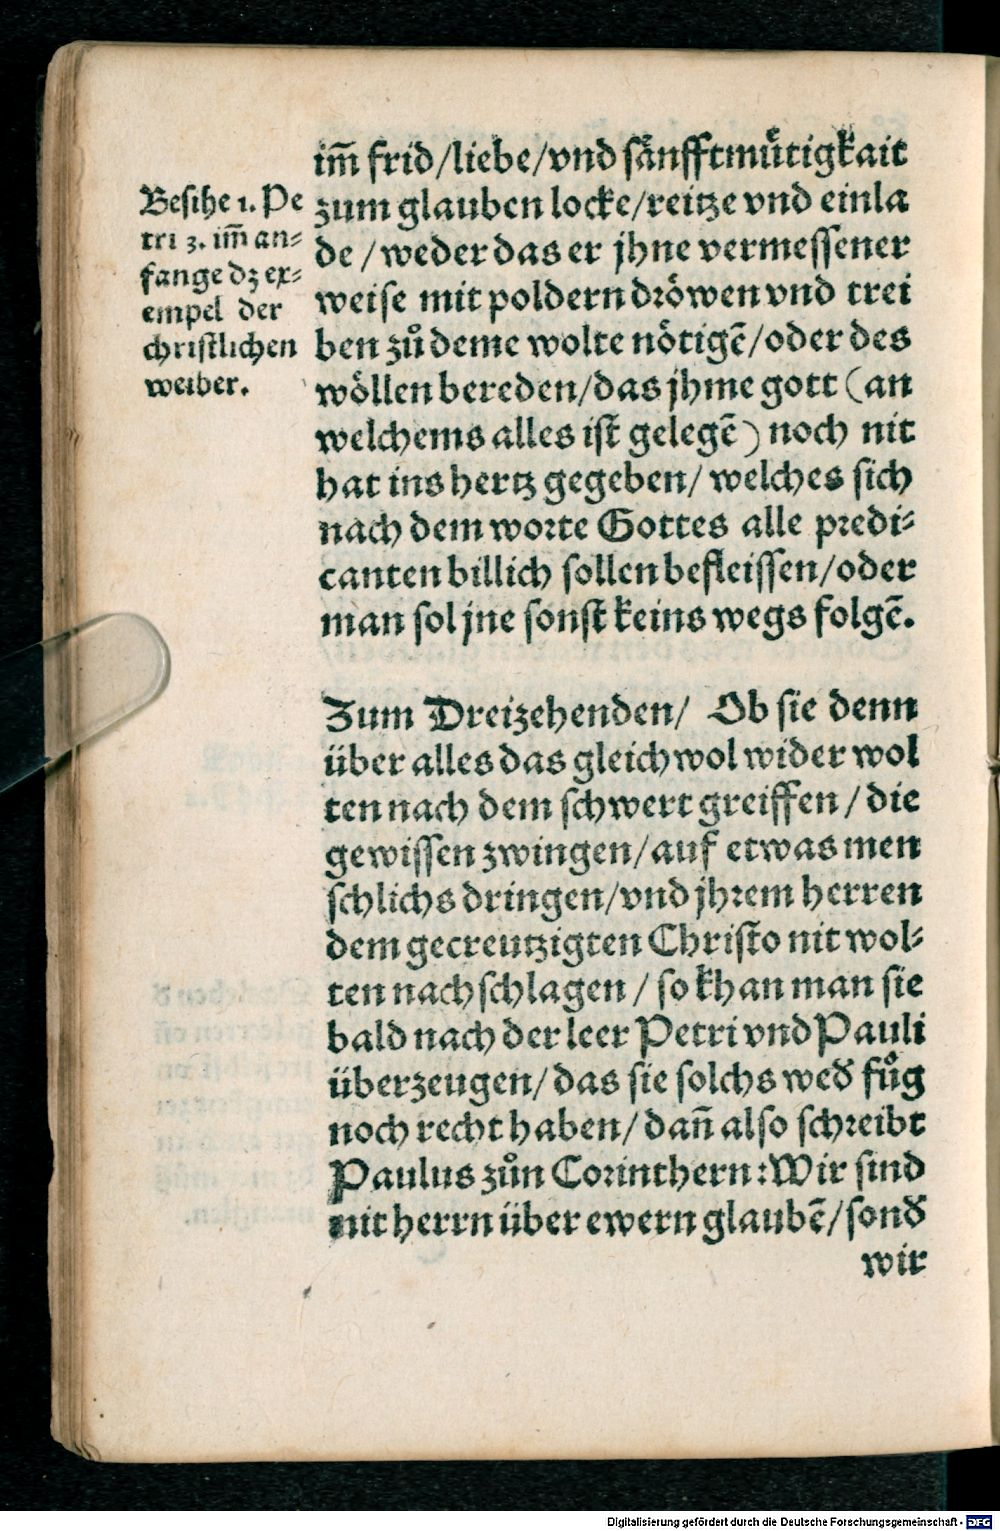 Besihe 1. Pe
tri 3. im̃ an⸗
fange dz ex⸗
empel der
christlichen
weiber.
im̃ frid/liebe/vnd sänfftmuͤtigkait
zum glauben locke/reitze vnd einla
de/weder das er jhne vermessener
weise mit poldern dröwen vnd trei
ben zů deme wolte nötigẽ/oder des
wöllen bereden/das jhme gott (an
welchems alles ist gelegẽ) noch nit
hat ins hertz gegeben/welches sich
nach dem worte Gottes alle predi⸗
canten billich sollen befleissen/oder
man sol jne sonst keins wegs folgẽ.
Zum Dreizehenden/ Ob sie denn
über alles das gleichwol wider wol
ten nach dem schwert greiffen/die
gewissen zwingen/auf etwas men
schlichs dringen/vnd jhrem herren
dem gecreutzigten Christo nit wol⸗
ten nachschlagen/so khan man sie
bald nach der leer Petri vnd Pauli
überzeugen/das sie solchs wed̕ fůg
noch recht haben/dañ also schreibt
Paulus zůn Corinthern: Wir sind
nit herrn über ewern glaubẽ/sond̕
wir
Digitalisierung gefördert durch die Deutsche Forschungsgemeinschaft - DFG